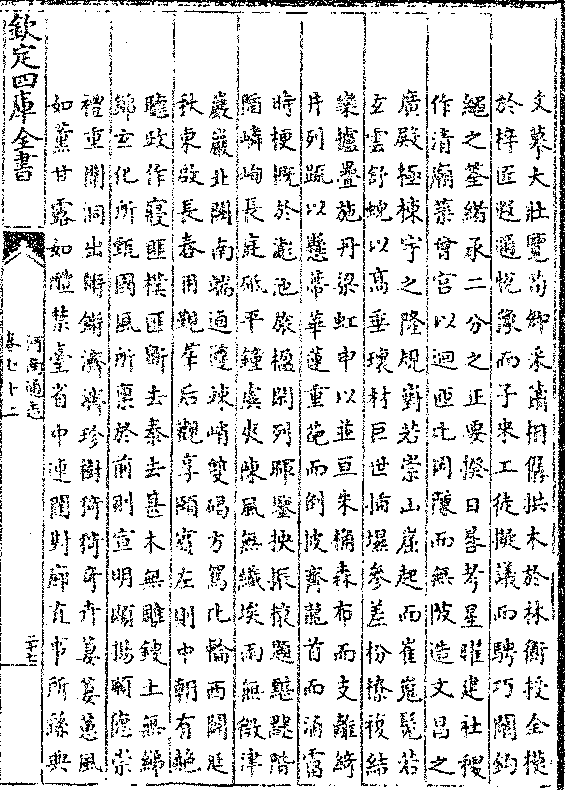 文摹大壯覽荀卿采蕭相僝拱木於林衡授全模
於梓匠遐邇悅豫而子來工徒擬議而騁巧闡鉤
繩之筌緒承二分之正要揆日晷考星曜建社稷
作清廟築曾宮以迴匝比岡隒而無陂造文昌之
廣殿極棟宇之隆規對若崇山崖起而崔嵬髧若
玄雲舒蜺以高垂瓌材巨世插墆參差枌橑複結
欒櫨疊施丹梁虹申以並亘朱桷森布而支離綺
井列疏以懸蔕華蓮重葩而倒披齊龍首而涌霤
時梗概於滮池旅楹閑列暉鑒挋振榱題黮階
嶙峋長庭砥平鐘虡夾陳風無纖埃雨無微津
巖巖北闕南端逌遵竦峭雙碣方駕比輪西闢延
秋東啟長春用覲羣后觀享頤賓左則中朝有赩
聽政作寢匪樸匪斲去泰去甚木無雕鎪土無綈
錦玄化所甄國風所稟於前則宣明顯揚順德崇
禮重闈洞出鏘鏘濟濟珍樹猗猗奇卉萋萋蕙風
如薰甘露如醴禁臺省中連闥對廊直事所繇典
欽定四庫全書
河南通志
卷七十二
二十七